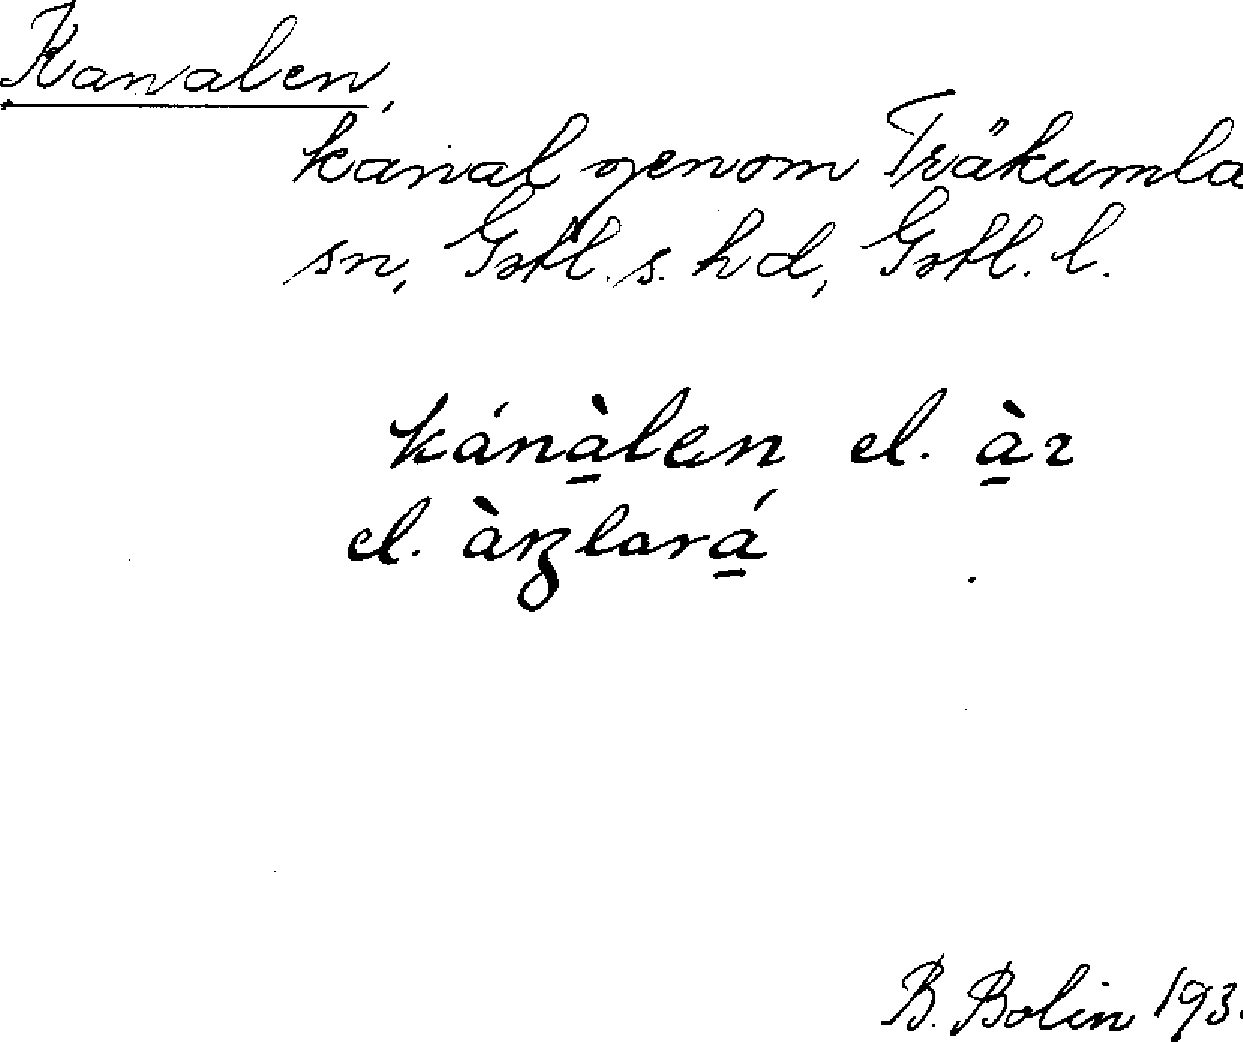 Kanalen,
kanal genom Träkumla
sn, Gotl. s. hd, Gotl. l.
kánàlen el. àr
el. àŋlará
B. Bolin 193.